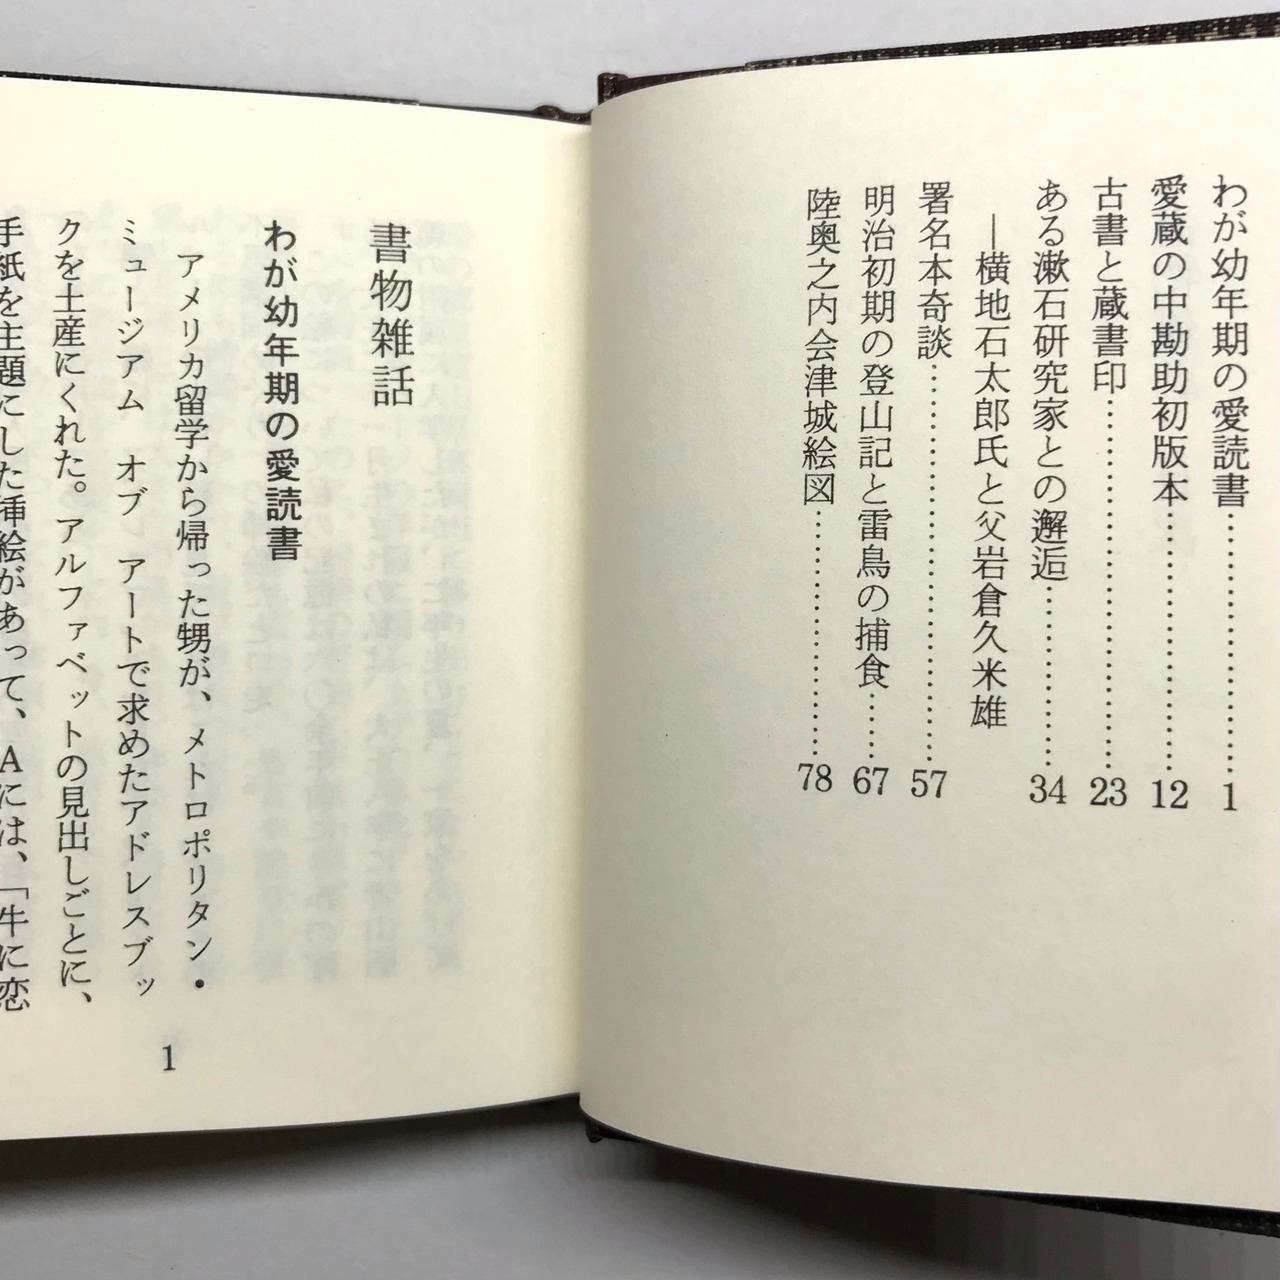 わが幼年期の愛読書……………………1
愛蔵の中勘助初版本……………………12
古書と蔵書印……………………………23
ある漱石研究家との邂逅………………34
―横地石太郎氏と父岩倉久米雄
署名本奇談………………………………57
明治初期の登山記と雷鳥の捕食………67
陸奥之内会津城絵図……………………78
書物雑話
わが幼年期の愛読書
アメリカ留学から帰った甥が、メトロポリタン・
ミュージアム オブ アートで求めたアドレスブッ
クを土産にくれた。アルファベットの見出しごとに、
手紙を主題にした挿絵があって、Aには、「牛に恋
1